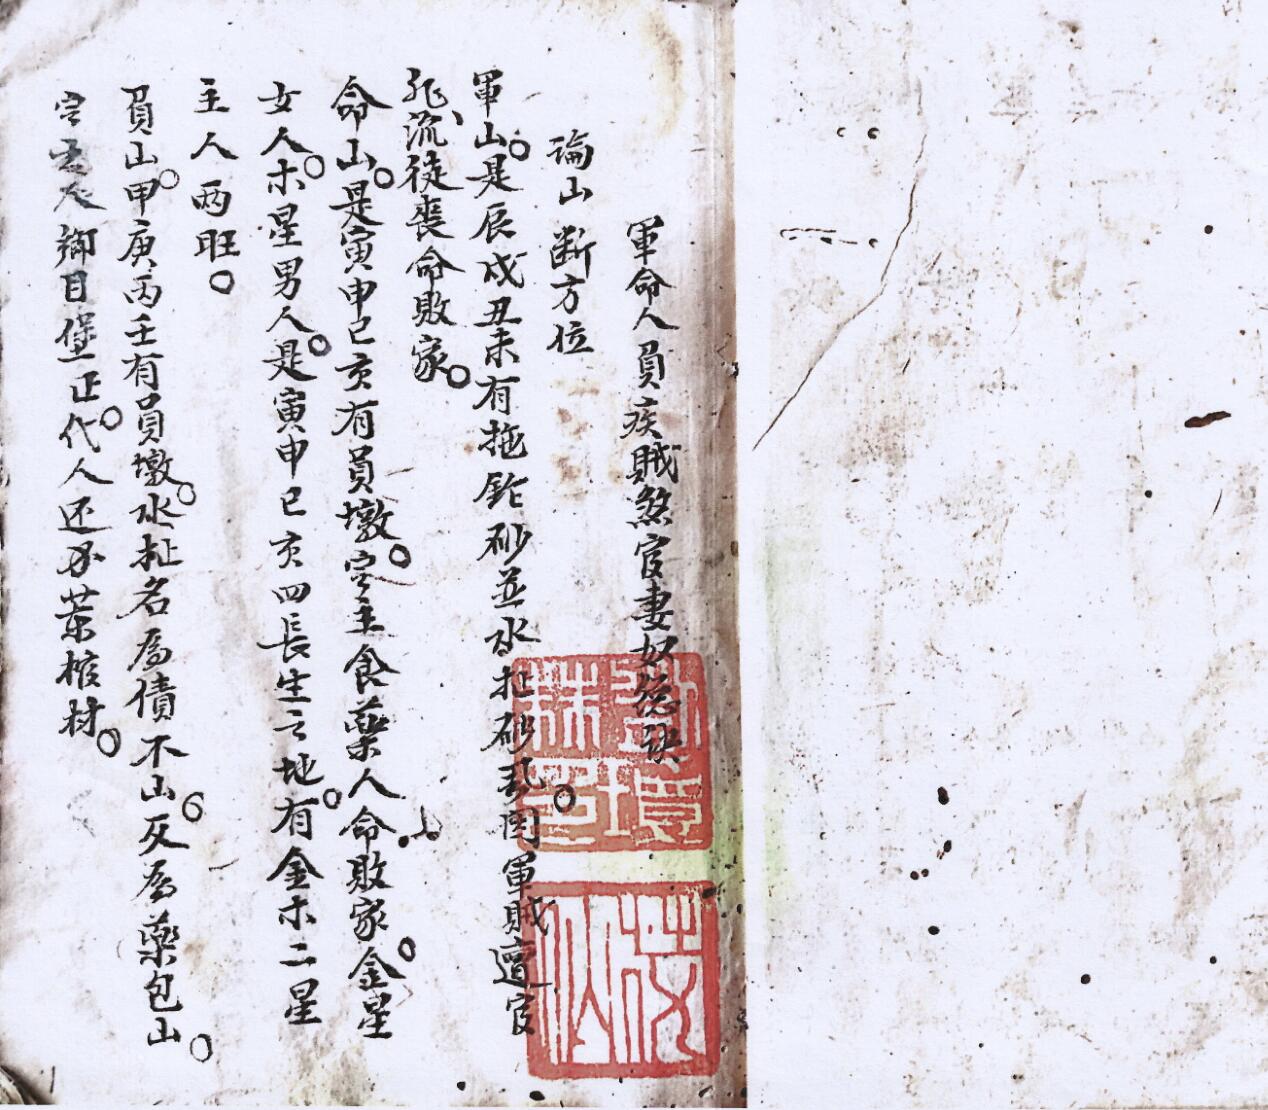 軍命人員疾賊煞官妻奴
論山斷方位
軍山。是辰戌丑未有拖鈐砂並水扯砂乱。囯軍賊遭官
非、流徒喪命敗家。
命山。是寅申巳亥有員墩。定主食藥人命敗家。金星
女人。木星男人。是寅申巳亥四長生之地。有金木二星
主人兩旺。
員山。甲庚丙壬有員墩。水扯名為債不山。反為藥包山。
鄉目堡正。代人还 棺材。